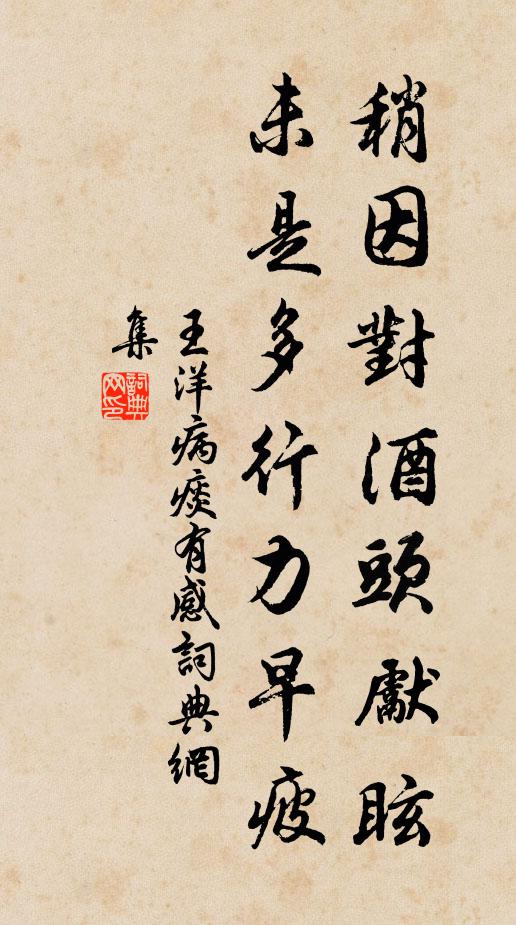 稍因對酒頭獻眩
未是多行力早疲
王洋病痰有感詞典網
集
詞典
网印